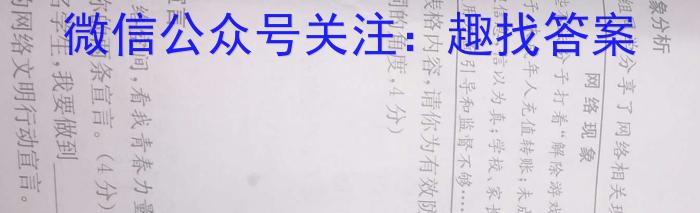 微信公众号关注：趣找答案
象分析
组 分享了网络相关现
网络现象
分子打着“解除游戏
年人充值转账；未成
言以为真；学校、家长
引导和监督不够……
表格内容，请你为有效防
同的角度，4分）
间，看我青春力量
条宣言。（4分）
名学生，我要做到
的网络文明行动宣言。